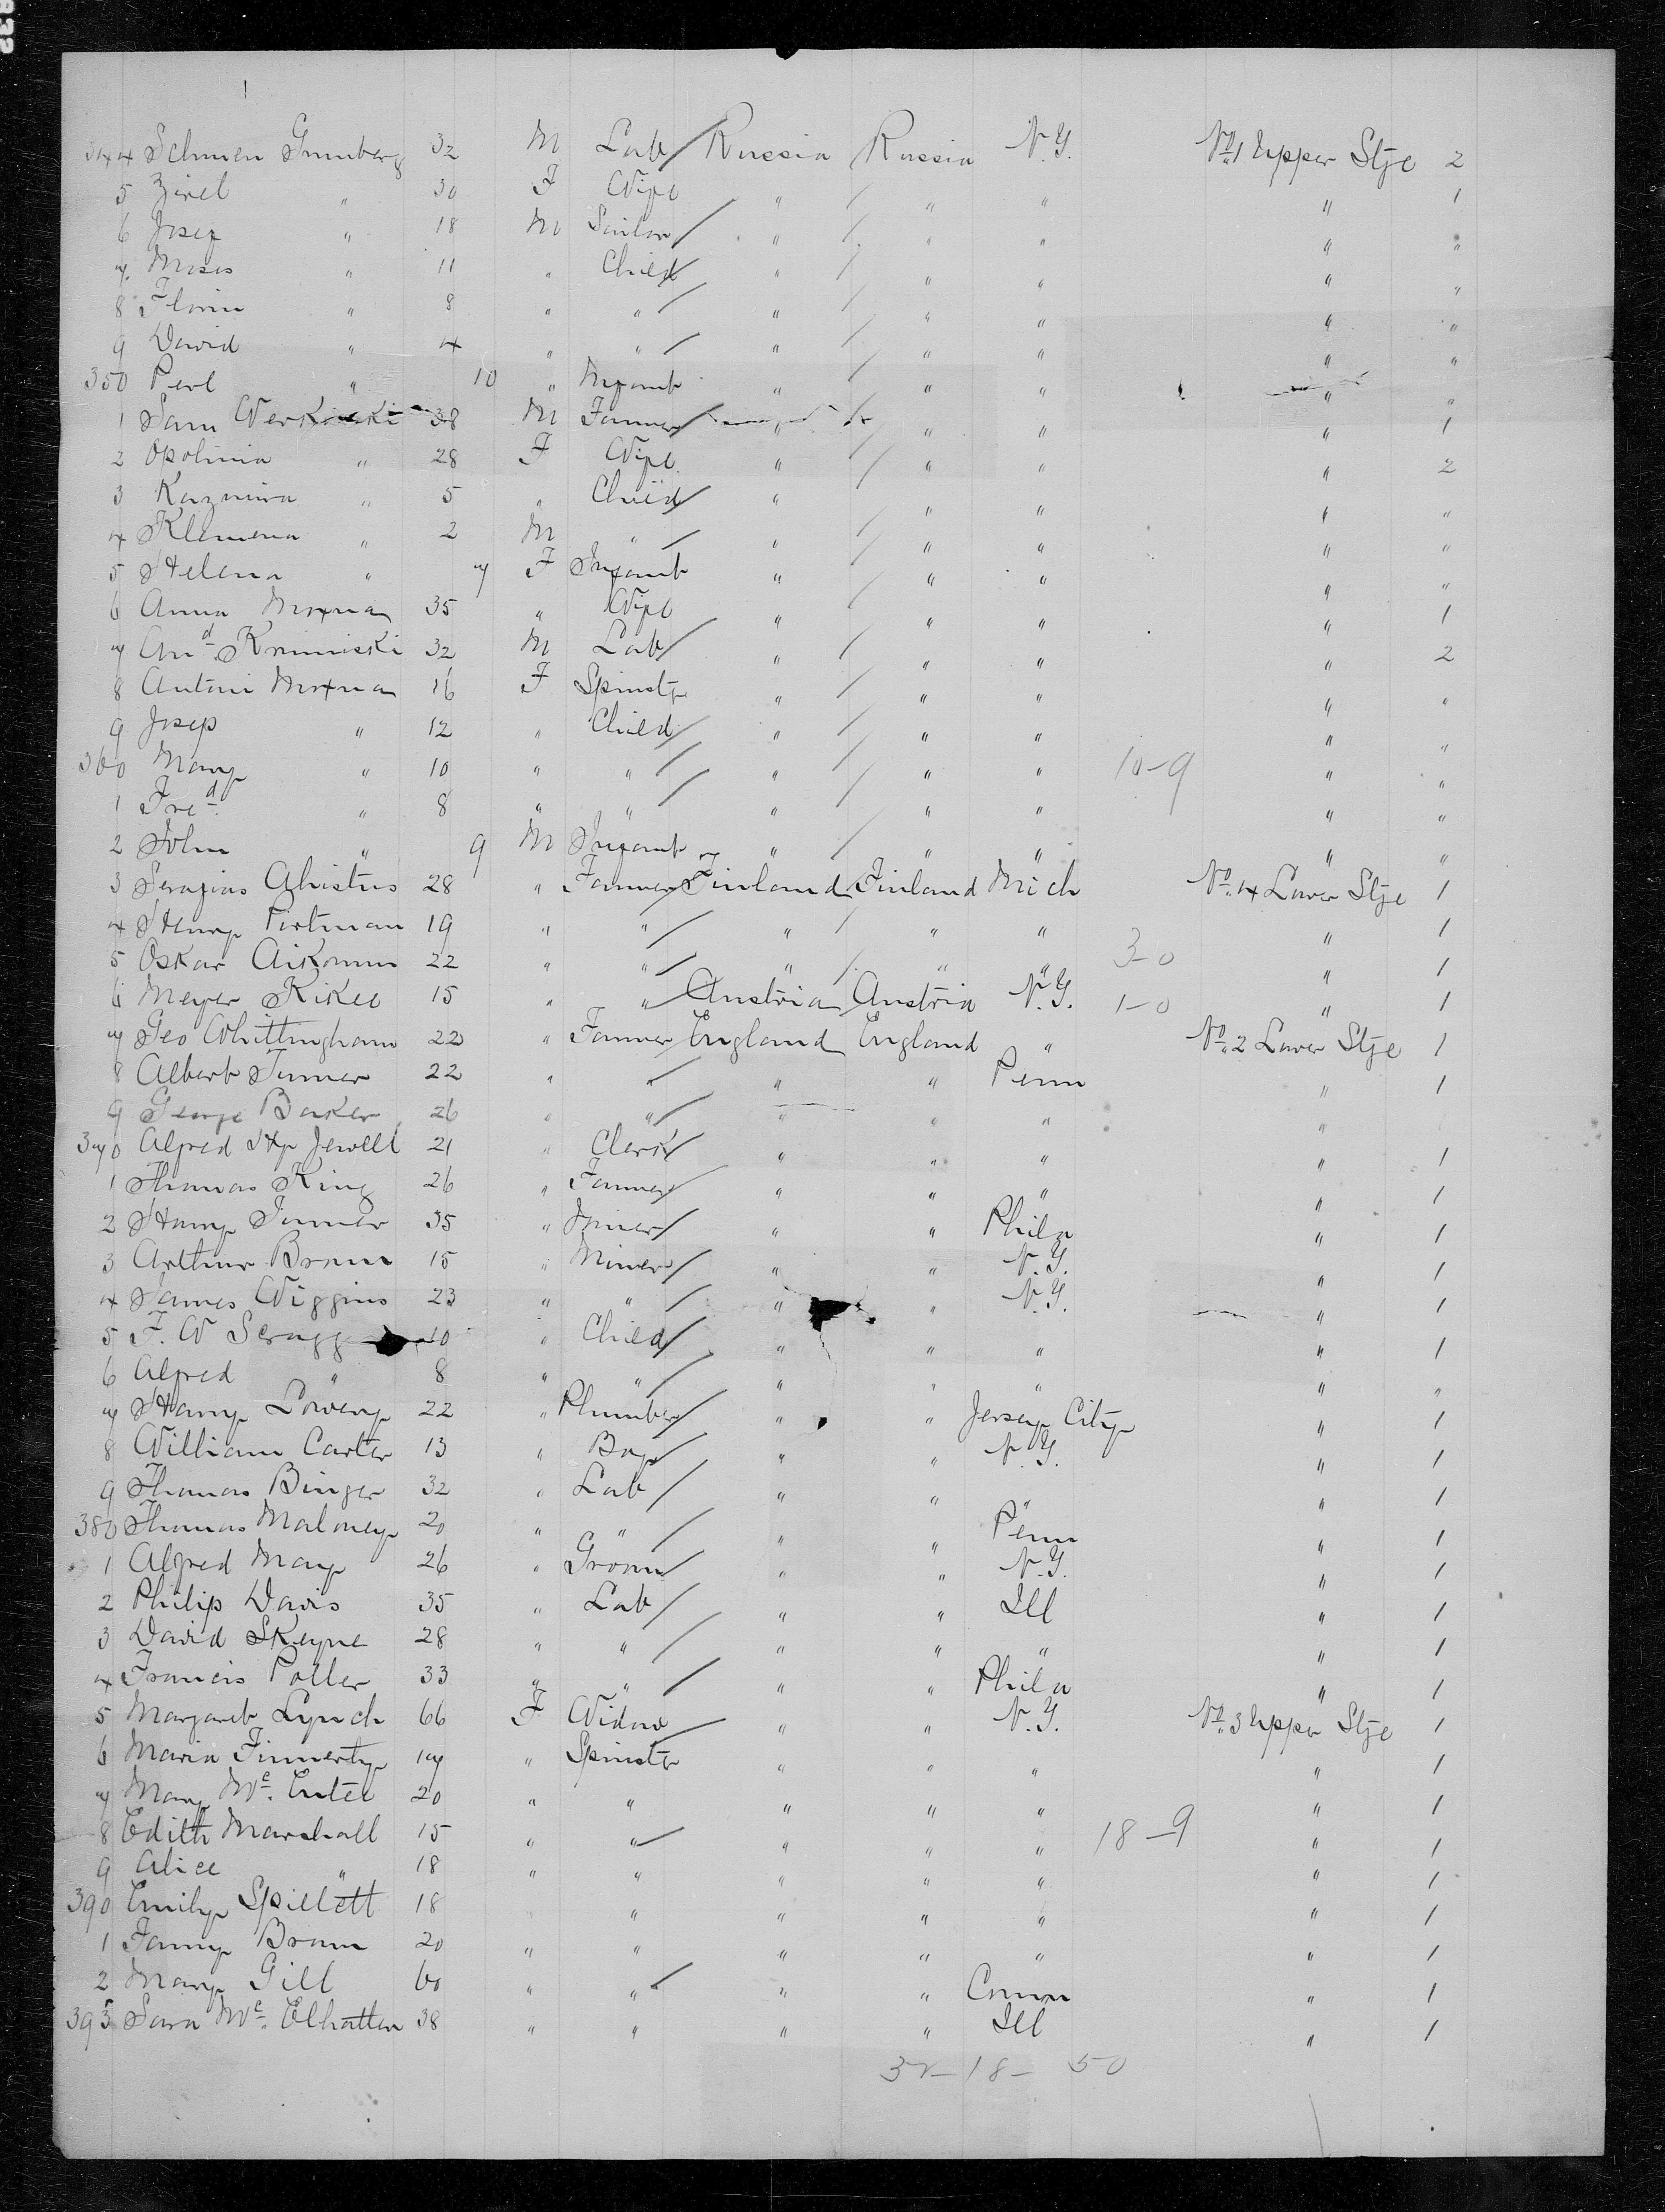 344 Schmen Grunberg 32 M Lab Russia Russia N.Y. No. 1 Upper Stge 2
5 Zirel " 30 F Wife " " " " 1
6 Josef " 18 M " " " " "
7 Moses " 11 " Child " " " " "
8 Florin " 8 " " " " " " "
9 David " 4 " " " " " " "
350 Perl " 10 " Infant " " " " "
1 Sam 38 M Farmer " " " " 1
2 Opolinia " 28 F Wife " " " " 2
3 Kazmira " 5 " Child " " " " "
4 Klemena " 2 M " " " " " "
5 Helena " 7 F Infant " " " " "
6 Anna 35 " Wife " " " " 1
7 And Kriminiski 32 M Lab " " " " 2
8 Antoni 16 F Spinstr " " " " "
9 Josep " 12 " Child " " " " "
360 Mary " 10 " " " " " 10-9 " "
1 Fred " 8 " " " " " " "
2 John " 9 M Infant " " " " "
3 28 " Farmer Finland Finland Mich No. 4 Lower Stge 1
4 Henry Portman 19 " " " " " " 1
5 Oskar 22 " " " " " 3-0 " 1
6 Meyer Kikel 15 " " Austria Austria N.Y. 1-0 " 1
7 Geo Whittingham 22 " Farmer England England " No. 2 Lower Stge 1
8 Albert Turner 22 " " " " Penn " 1
9 George Baker 26 " " " " " "
370 Alfred Hy Jewell 21 " Clerk " " " " 1
1 Thomas King 26 " Farmer " " " " 1
2 Harry Turner 35 " " " Phila " 1
3 Arthur Brown 15 " Miner " " N.Y. " 1
4 James Wiggins 23 " " " " N.Y. " 1
5 F. W Scragg 10 " Child " " " " 1
6 Alfred " 8 " " " " " " "
7 Harry Lowery 22 " Plumber " " Jersey City " 1
8 William Carter 13 " Boy " " N.Y. " 1
9 Thomas Binger 32 " Lab " " " " 1
380 Thomas Maloney 20 " " " " Penn " 1
1 Alfred May 26 " Groom " " N.Y. " 1
2 Philip Davis 35 " Lab " " Ill " 1
3 David Skeyne 28 " " " " " " 1
4 Francis Potter 33 " " " " Phila " 1
5 Margaret Lynch 66 F Widow " " N.Y. No. 3 Upper Stge 1
6 Maria Finnerty 17 " Spinstr " " " " 1
7 Mary Mc. Entee 20 " " " " " " 1
8 Edith Marshall 15 " " " " " 18-9 " 1
9 Alice " 18 " " " " " " 1
390 Emily Spillett 18 " " " " " 1
1 Fanny Brown 20 " " " " " " 1
2 Mary Gill 60 " " " " Conn " 1
393 Sara Mc. Elhatton 38 " " " " Ill " 1
32-18- 50